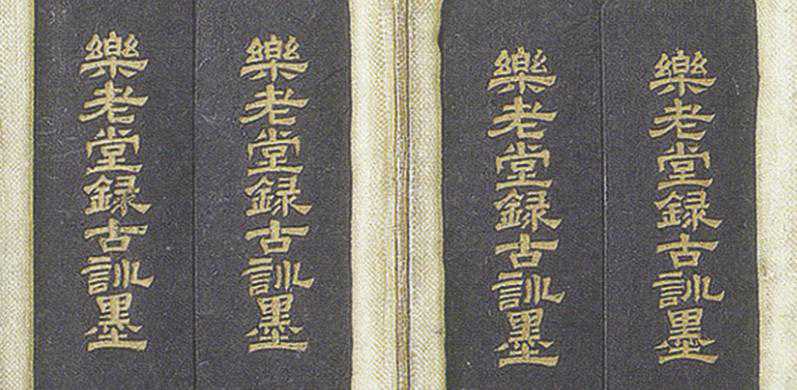 樂老堂録古訓墨
樂老堂録古訓墨
樂老堂録古訓墨
樂老堂録古訓墨